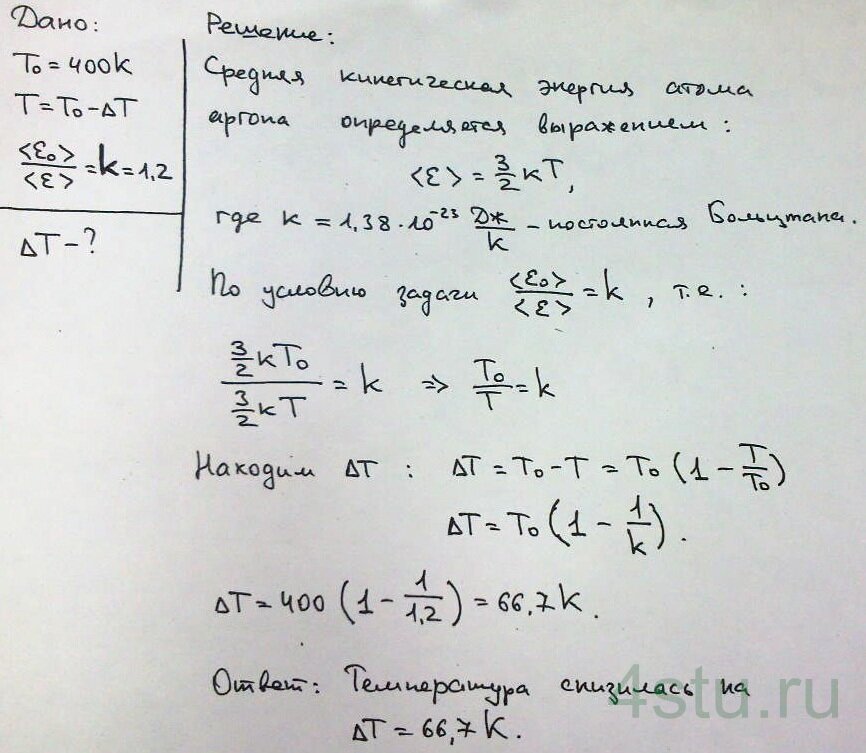 Дано:
T₀ = 400K
T = T₀ - ΔT
<ε₀>/<ε> = k = 1,2
ΔT - ?
Решение:
Средняя кинетическая энергия атома
аргона определяется выражением:
<ε> = 3/2 кT,
где к = 1,38 · 10⁻²³ Дж/k - постоянная Больцмана.
По условию задачи <ε₀>/<ε> = k, т.е.:
(3/2 кT₀)/(3/2 кT) = k ⇒ T₀/T = k
Находим ΔT: ΔT = T₀ - T = T₀ (1 - T/T₀)
ΔT = T₀ (1 - 1/k).
ΔT = 400 (1 - 1/1,2) = 66,7K.
Ответ: Температура снизилась на
ΔT = 66,7K.
4stu.ru